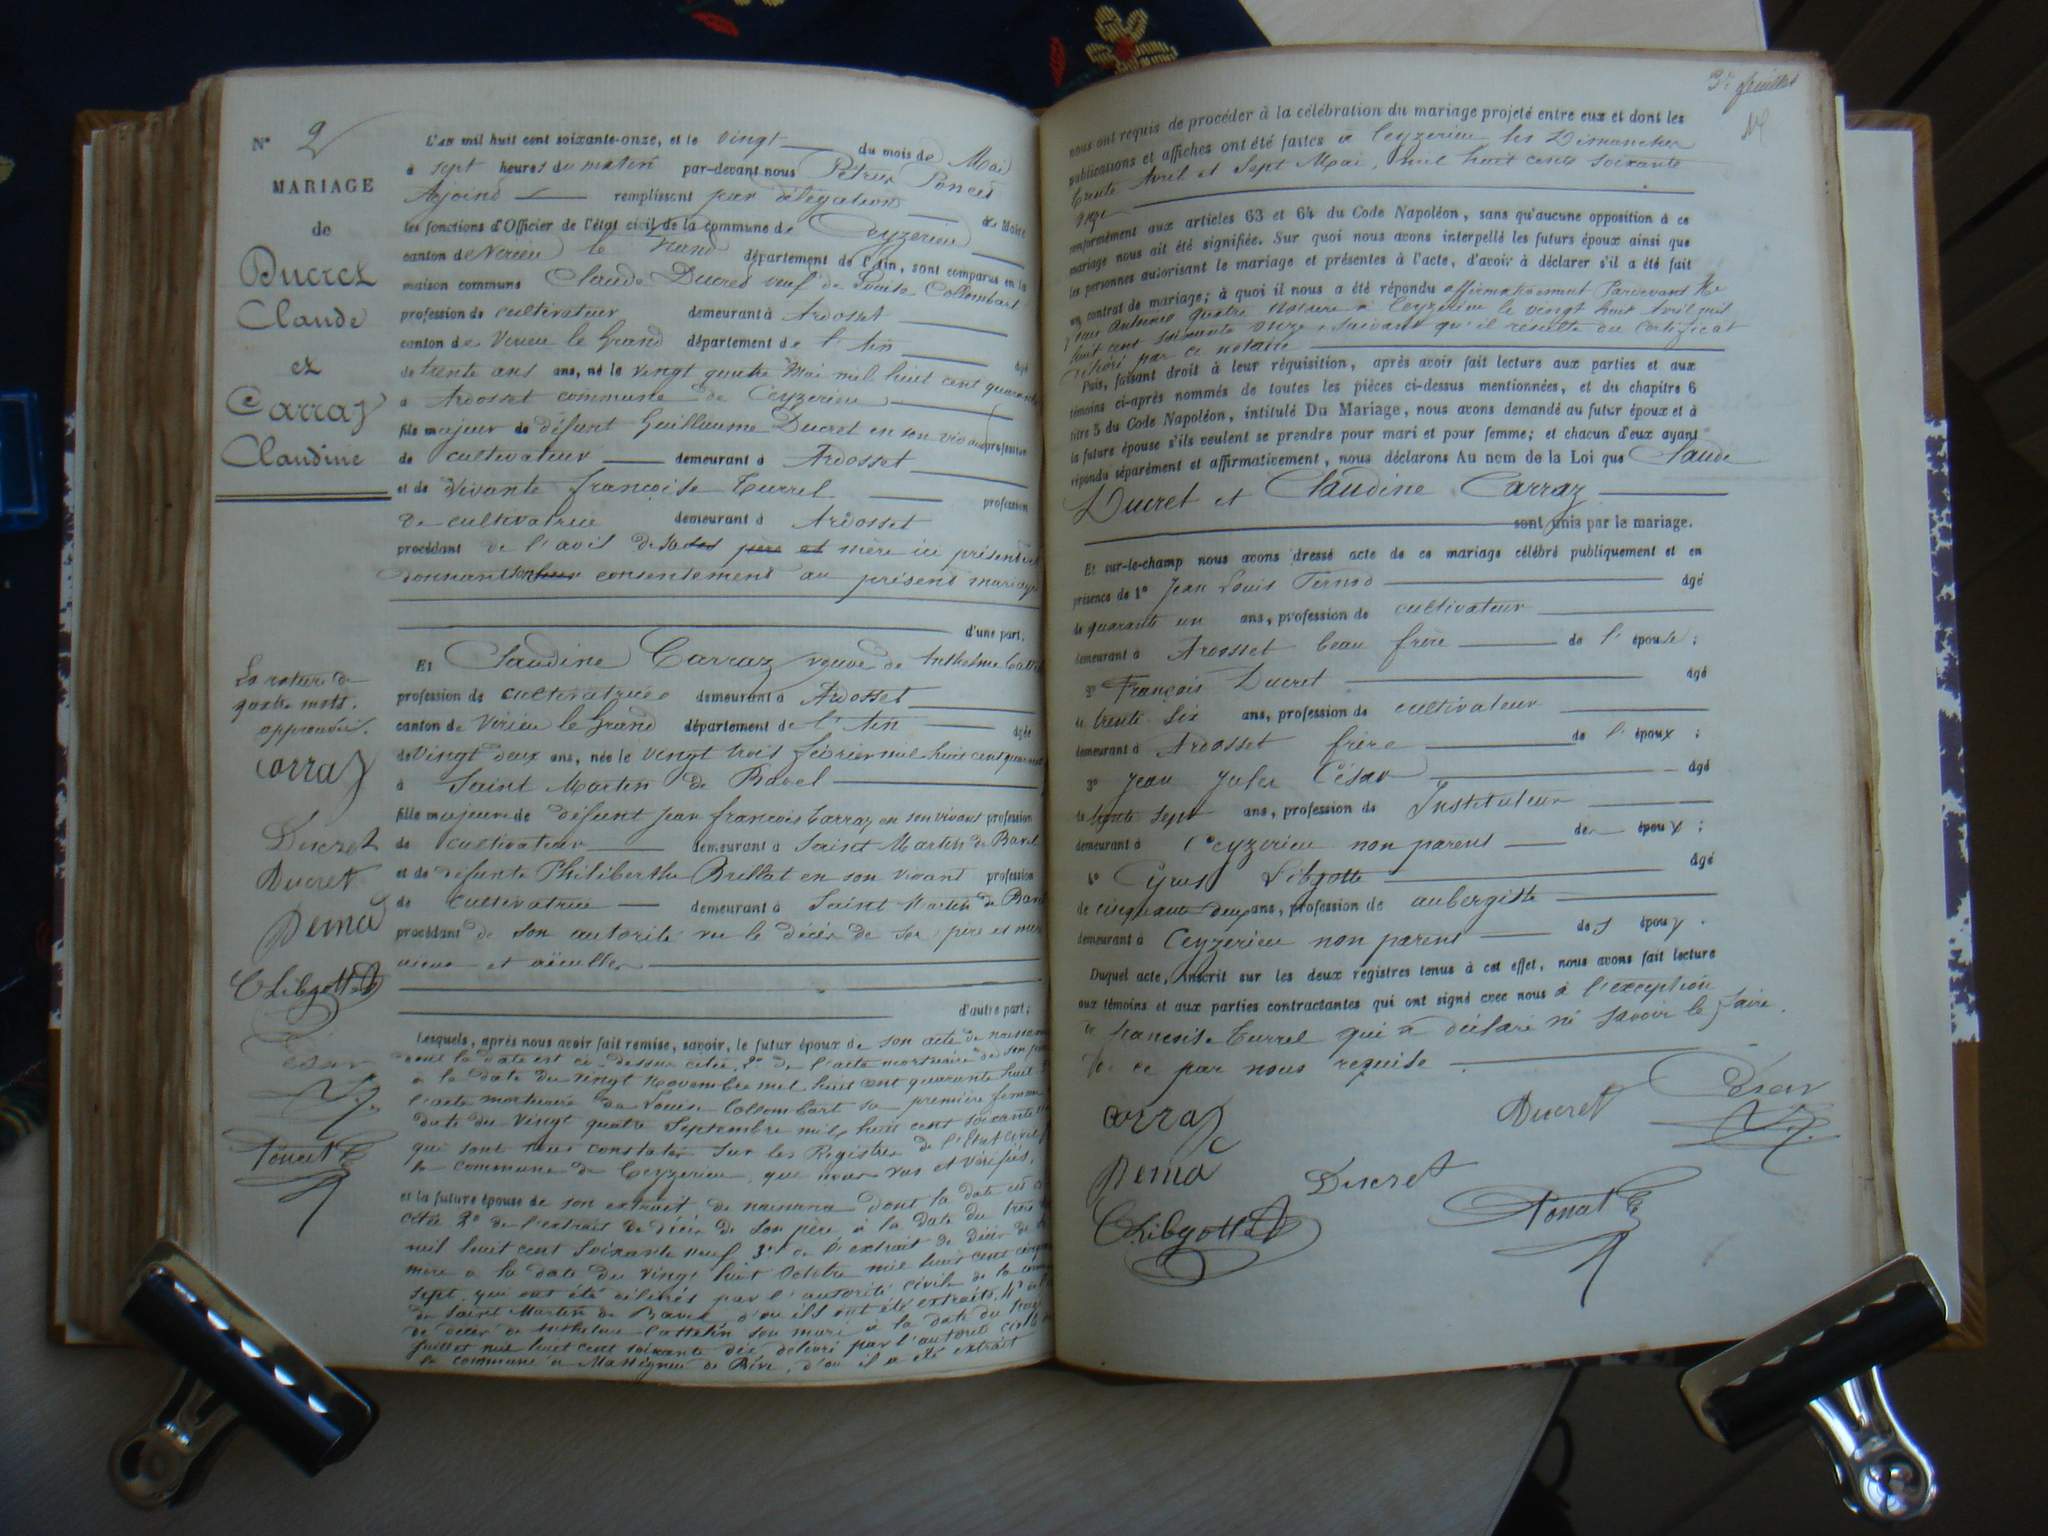 N° 2
MARIAGE
de
Ducret
Claude
et
Carraz
Claudine
L'an mil huit cent soixante-onze, et le vingt du mois de Mai
à sept heures du matin par-devant nous Pétrus Poncet
Ajoint remplissant par délégation de Maire
les fonctions d'Officier de l'état civil de la commune de Ceyzerieu
canton de Virieu le Grand département de l'Ain, sont comparus en la
maison commune Claude Ducret veuf de Louise Collombart
profession de cultivateur demeurant à Ardosset
canton de Virieu le Grand département de l'Ain âgé
de trente ans ans, né le vingt quatre Mai mil huit cent quarante
à Ardosset commune de Ceyzerieu
fils majeur de défunt Guillaume Ducret en son vivant profession
de cultivateur demeurant à Ardosset
et de Vivante françoise Turrel profession
de cultivatrice demeurant à Ardosset
procédant de l'avis de sa père et mère ici présente
donnant son consentement au présent mariage
d'une part;
Et Claudine Carraz veuve de Anthelme
profession de cultivatrice demeurant à Ardosset
canton de Virieu le Grand département de l'Ain âgée
de vingt deux ans, née le vingt trois février mil huit cent
à Saint Martin de Bavel
fille majeure de défunt Jean françois Carraz en son vivant profession
de cultivateur demeurant à Saint Martin de Bavel
et de défunte Philiberthe Brillat en son vivant profession
de cultivatrice demeurant à Saint Martin de Bavel
procédant de son autorité vu le décès de ses père et mère
aieux et aïeulles
d'autre part;
La rature de
quatre mots
approuvée.
Carraz
Ducret
Ducret
Pernod
C Libgotte
César
Poncet
Lesquels, après nous avoir fait remise, savoir, le futur époux de son acte de naissance
dont la date est ci-dessus citée, 2° de l'acte mortuaire de son père
à la date du vingt Novembre mil huit cent quarante huit 3°
l'acte mortuaire de Louise Collombart sa première femme
date du vingt quatre Septembre mil huit cent soixante
qui sont tous constatés sur les Registres de l'Etat civil
la commune de Ceyzerieu, que nous vus et vérifiés,
et la future épouse de son extrait de naissance dont la date est
citée 2° de l'extrait de décès de son père à la date du trois
mil huit cent soixante neuf 3° de l'extrait de décès de
mère à la date du vingt huit Octobre mil huit cent
sept, qui ont été délivrés par l'autorité civile de la
de Saint Martin de Bavel d'où ils ont été extraits. 4°
de décès de Anthelme Cattelin son mari à la date du
Juillet mil huit cent soixante dix délivré par l'autorité civile
la commune de Massigneu de Rive, d'où il a été extrait
3e feuillet
nous ont requis de procéder à la célébration du mariage projeté entre eux et dont les
publications et affiches ont été faites à Ceyzerieu les Dimanches
trente Avril et Sept Mai, mil huit cent soixante
onze
conformément aux articles 63 et 64 du Code Napoléon, sans qu'aucune opposition à ce
mariage nous ait été signifiée. Sur quoi nous avons interpellé les futurs époux ainsi que
les personnes autorisant le mariage et présentes à l'acte, d'avoir à déclarer s'il a été fait
un contrat de mariage; à quoi il nous a été répondu affirmativement Pardevant Me
Antoine quatre Notaire à Ceyzerieu le vingt huit Avril mil
huit cent soixante onze, suivant qu'il résulte du certificat
délivré par ce notaire
Puis, faisant droit à leur réquisition, après avoir fait lecture aux parties et aux
témoins ci-après nommés de toutes les pièces ci-dessus mentionnées, et du chapitre 6
titre 5 du Code Napoléon, intitulé Du Mariage, nous avons demandé au futur époux et à
la future épouse s'ils veulent se prendre pour mari et pour femme; et chacun d'eux ayant
répondu séparément et affirmativement, nous déclarons Au nom de la Loi que Claude
Ducret et Claudine Carraz
sont unis par le mariage.
Et sur-le-champ nous avons dressé acte de ce mariage célébré publiquement et en
présence de 1° Jean Louis Pernod âgé
de quarante un ans, profession de cultivateur
demeurant à Ardosset beau frère de l'épouse;
2° François Ducret âgé
de trente six ans, profession de cultivateur
demeurant à Ardosset frère de l'époux;
3° Jean Jules César âgé
de trente sept ans, profession de Instituteur
demeurant à Ceyzerieu non parent des époux;
4° Cyrus Libgotte âgé
de cinquante deux ans, profession de aubergiste
demeurant à Ceyzerieu non parent des époux.
Duquel acte, inscrit sur les deux registres tenus à cet effet, nous avons fait lecture
aux témoins et aux parties contractantes qui ont signé avec nous à l'exception
de françoise Turrel qui a déclaré ne savoir le faire
de ce par nous requise
Carraz
Ducret
César
Pernod
Ducret
C Libgotte
Poncet